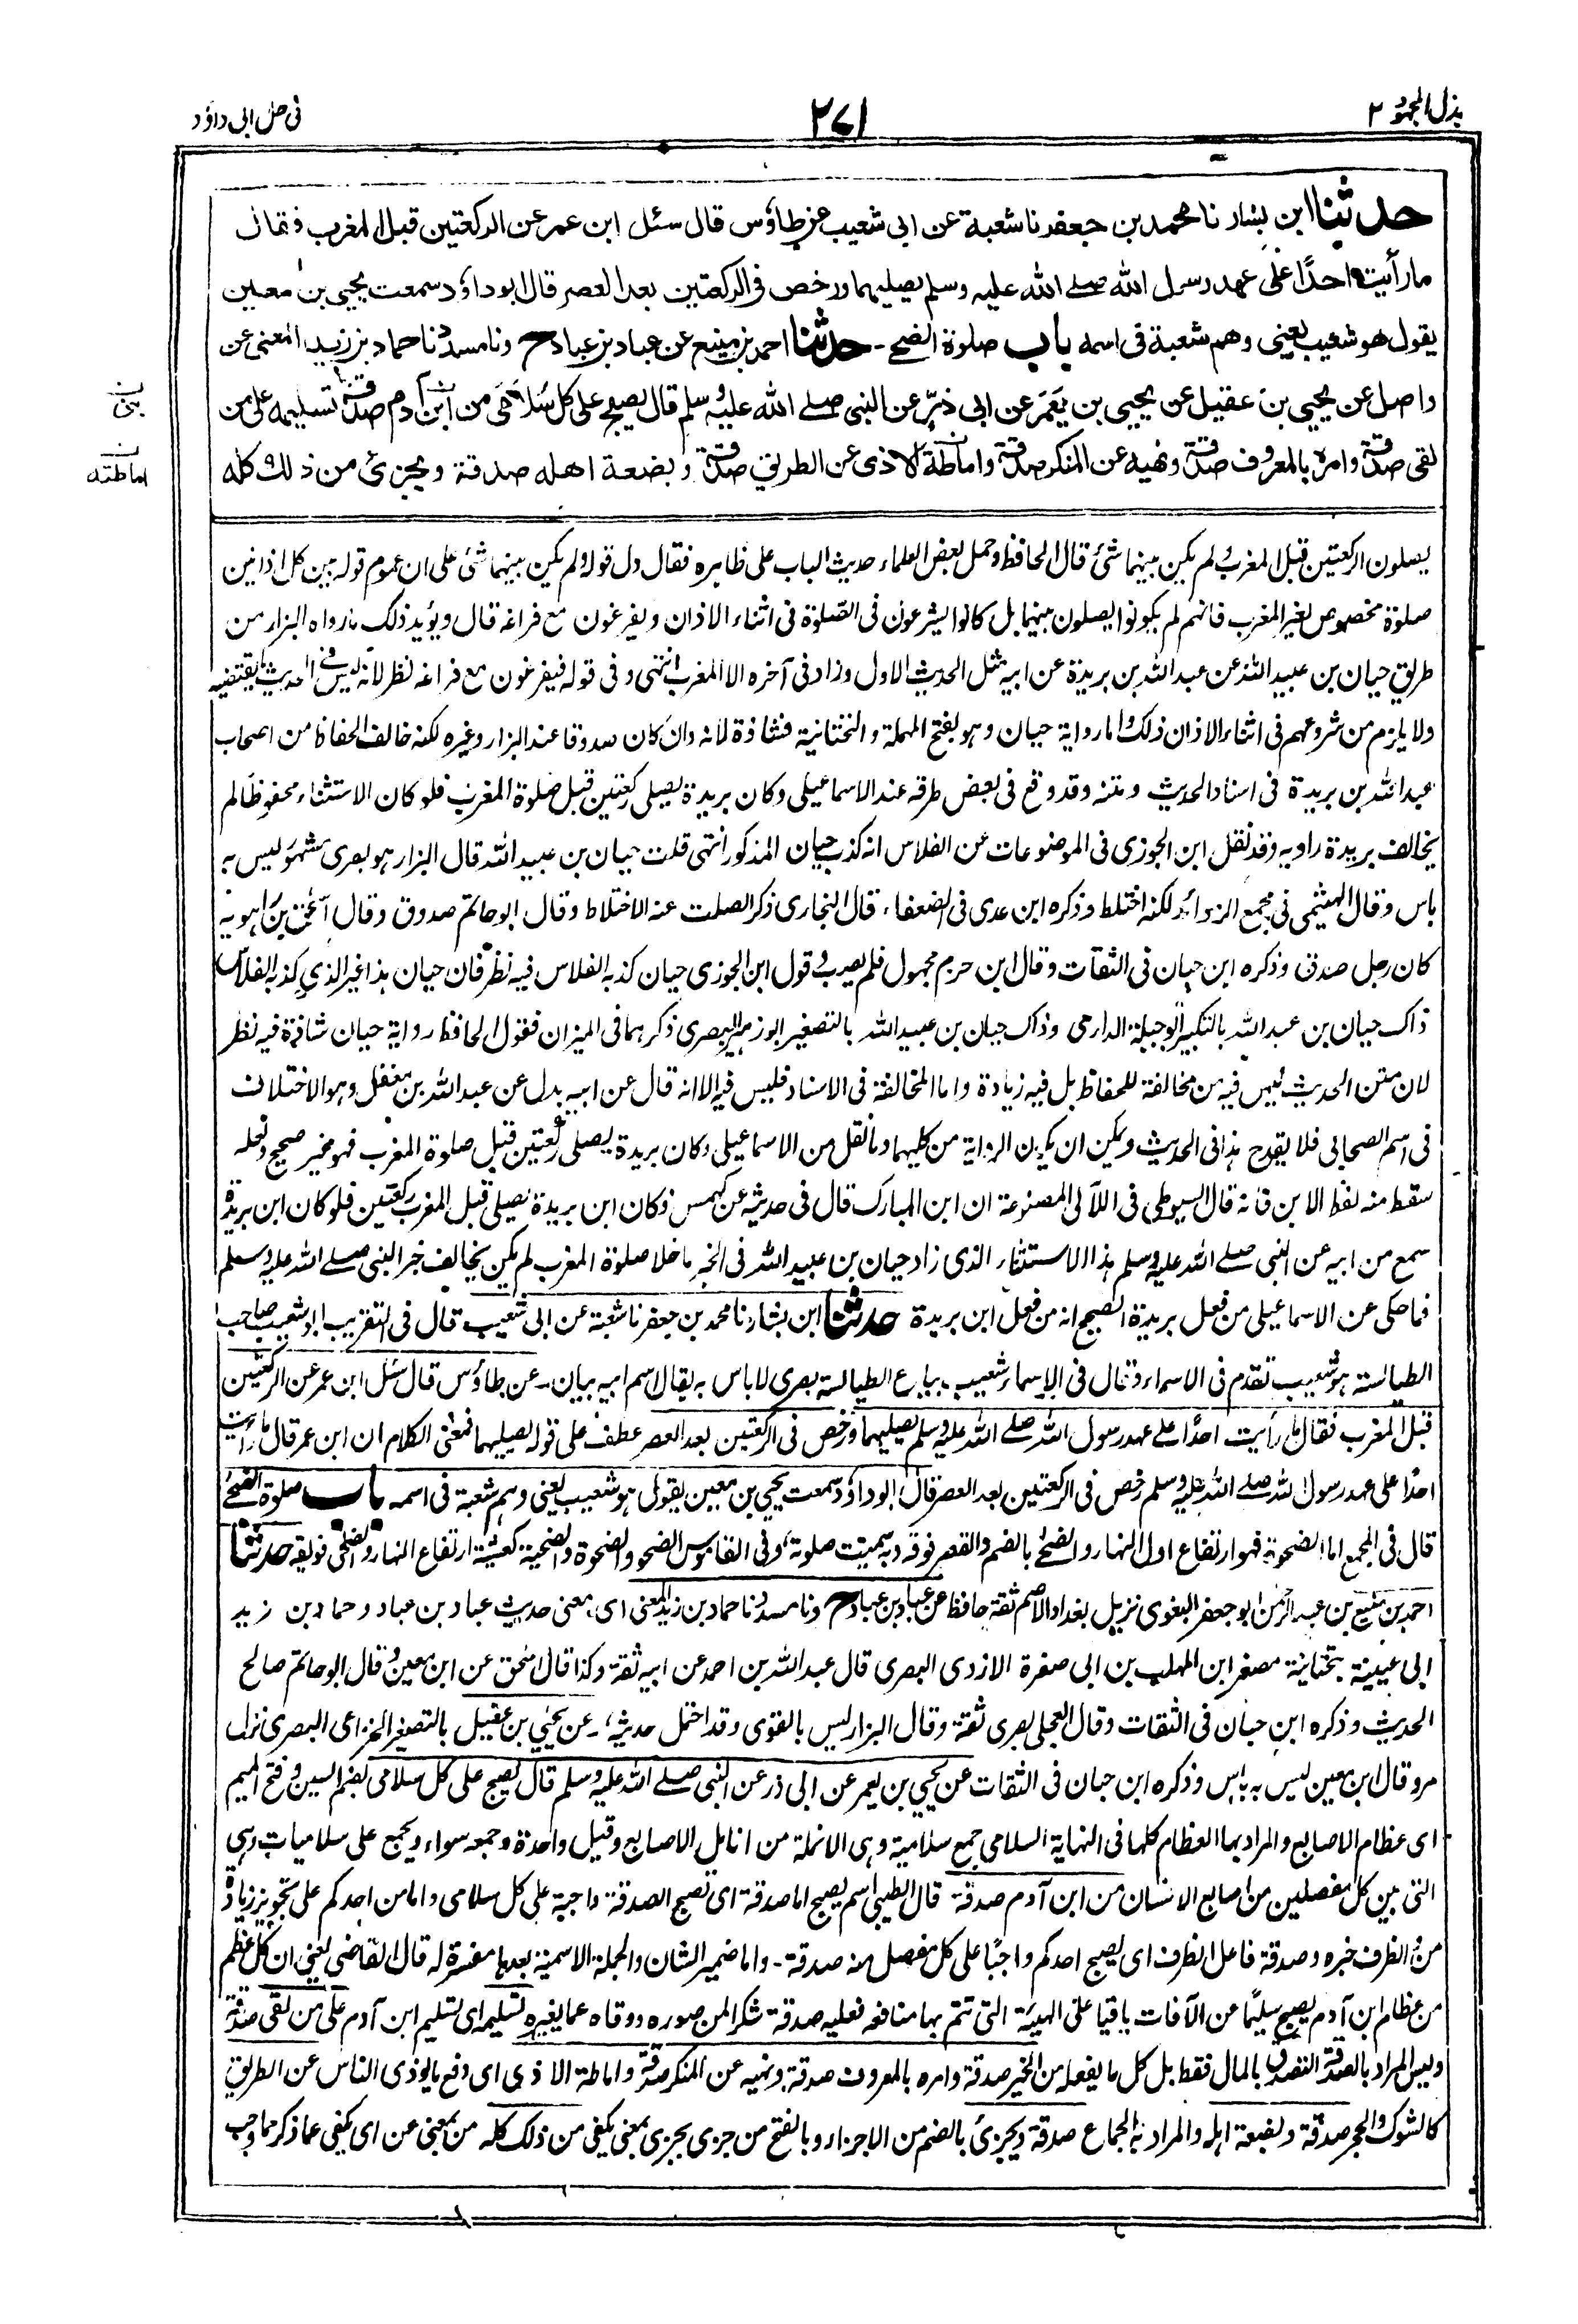 بذل المجهود ٢
٢٧١
فی حل ابی داؤد
حدثنا ابن بشار نا محمد بن جعفر نا شعبة عن ابی شعیب عن طاؤس قال سئل ابن عمر عن الرکعتین قبل المغرب فقال
ما رأیت احدًا علی عهد رسول الله صلے الله علیه وسلم یصلیهما ورخص فی الرکعتین بعد العصر قال ابوداؤد سمعت یحیی بن معین
یقول هو شعیب یعنی وهم شعبة فی اسمه باب صلوة الضحے - حدثنا احمد بن منیع عن عباد بن عباد ح ونا مسدد نا حماد بن زید المعنی عن
واصل عن یحیی بن عقیل عن یحیی بن یَعْمَر عن ابی ذرّ عن النبی صلے الله علیه وسلم قال یصبح علی کل سُلامَی من ابن آدم صدقة تسلیمه علی من
لقی صدقة وامره بالمعروف صدقة ونهیه عن المنکر صدقة واماطة الاذی عن الطریق صدقة وبضعة اهله صدقة ویجزئ من ذلك کله
بنی
اماطته
یصلون الرکعتین قبل المغرب ولم یکن بینهما شئ قال الحافظ وحمل بعض العلماء حدیث الباب علی ظاهره فقال دل قوله ولم یکن بینهما شئ علی ان عموم قوله بین کل اذانین
صلوة مخصوص بغیر المغرب فانهم لم یکونوا یصلون بینهما بل کانوا یشرعون فی الصّلوة فی اثناء الاذان ویفرغون مع فراغه قال ویؤید ذلک ما رواه البزار من
طریق حیان بن عبید الله عن عبد الله بن بریدة عن ابیه مثل الحدیث الاول وزاد فی آخره الا المغرب انتهی وفی قوله فیفرغون مع فراغه نظر لانه لیس فی الحدیث ما یقتضیه
ولا یلزم من شروعهم فی اثناء الاذان ذلک واما روایة حیان وهو بفتح المهملة والتحتانیة فشاذة لانه وان کان صدوقا عند البزار وغیره لکنه خالف الحفاظ من اصحاب
عبد الله بن بریدة فی اسناد الحدیث ومتنه وقد وقع فی بعض طرقه عند الاسماعیلی وکان بریدة یصلی رکعتین قبل صلوة المغرب فلو کان الاستثناء محفوظا لم
یخالف بریدة راویه وقد نقل ابن الجوزی فی الموضوعات عن الفلاس انه کذب حیان المذکور انتهی قلت حیان بن عبید الله قال البزار هو بصری مشهور لیس به
باس وقال الهیثمی فی مجمع الزوائد لکنه اختلط وذکره ابن عدی فی الضعفاء، قال البخاری ذکر الصلت عنه الاختلاط وقال ابو حاتم صدوق وقال اسحٰق بن راهویه
کان رجل صدق وذکره ابن حبان فی الثقات وقال ابن حزم مجهول فلم یصب وقول ابن الجوزی حیان کذبه الفلاس فیه نظر فان حیان هذا غیر الذی کذبه الفلاس
ذاک حیان بن عبد الله بالتکبیر ابو جبلة الدارمی وذاک حیان بن عبید الله بالتصغیر ابو زهیر البصری ذکرهما فی المیزان فقول الحافظ روایة حیان شاذة فیه نظر
لان متن الحدیث لیس فیه من مخالفة للحفاظ بل فیه زیادة واما المخالفة فی الاسناد فلیس فیه الا انه قال عن ابیه بدل عن عبد الله بن مغفل وهو الاختلاف
فی اسم الصحابی فلا یقدح هذا فی الحدیث ویمکن ان یکون الروایة من کلیهما وما نقل من الاسماعیلی وکان بریدة یصلی رکعتین قبل صلوة المغرب فهو غیر صحیح ولعله
سقط منه لفظ الابن فانه قال السیوطی فی اللآلی المصنوعة ان ابن المبارک قال فی حدیثه عن کهمس وکان ابن بریدة یصلی قبل المغرب رکعتین فلو کان ابن بریدة
سمع من ابیه عن النبی صلے الله علیه وسلم هذا الاستثناء الذی زاد حیان بن عبید الله فی الخبر ما خلا صلوة المغرب لم یکن یخالف خبر النبی صلے الله علیه وسلم
فما حکی عن الاسماعیلی من فعل بریدة الصحیح انه من فعل ابن بریدة حدثنا ابن بشار نا محمد بن جعفر نا شعبة عن ابی شعیب قال فی التقریب ابو شعیب صاحب
الطیالسة هو شعیب تقدم فی الاسماء وقال فی الاسماء شعیب بیاع الطیالسة بصری لا باس به یقال اسم ابیه بیان۔ عن طاؤس قال سئل ابن عمر عن الرکعتین
قبل المغرب فقال ما رأیت احدًا علے عهد رسول الله صلے الله علیه وسلم یصلیهما ورخص فی الرکعتین بعد العصر عطف علی قوله یصلیهما فمعنی الکلام ان ابن عمر قال ما رأیت
احدًا علی عهد رسول الله صلے الله علیه وسلم رخص فی الرکعتین بعد العصر قال ابوداؤد سمعت یحیی بن معین یقول هو شعیب یعنی وهم شعبة فی اسمه باب صلوة الضحے
قال فی المجمع اما الضحوة فهو ارتفاع اول النهار والضحے بالضم والقصر فوقه وبه سمیت صلوته، وفی القاموس الضحو والضحوة والضحیة کعشیة ارتفاع النهار والضحی فویقه حدثنا
احمد بن منیع بن عبد الرحمٰن ابو جعفر البغوی نزیل بغداد الاصم ثقة حافظ عن عباد بن عباد ح ونا مسدد نا حماد بن زید المعنی ای معنی حدیث عباد بن عباد وحماد بن زید
ابی عیینة بتحتانیة مصغر ابن المهلب بن ابی صفرة الازدی البصری قال عبد الله بن احمد عن ابیه ثقة وکذا قال اسحٰق عن ابن معین وقال ابو حاتم صالح
الحدیث وذکره ابن حبان فی الثقات وقال العجلی بصری ثقة وقال البزار لیس بالقوی وقد احتمل حدیثه، - عن یحیی بن عقیل بالتصغیر الخزاعی البصری نزل
مرو قال ابن معین لیس به باس وذکره ابن حبان فی الثقات عن یحیی بن یعمر عن ابی ذر عن النبی صلے الله علیه وسلم قال یصبح علی کل سلامی بضم السین وفتح المیم
ای عظام الاصابع والمراد بها العظام کلها فی النهایة السلامی جمع سلامیة وهی الانملة من انامل الاصابع وقیل واحدة وجمعه سواء ویجمع علی سلامیات وهی
التی بین کل مفصلین من اصابع الانسان من ابن آدم صدقة قال الطیبی اسم یصبح اما صدقة ای تصبح الصدقة واجبة علی کل سلامی واما من احدکم علی تجویز زیادة
من والظرف خبره وصدقة فاعل الظرف ای یصبح احدکم واجبًا علی کل مفصل منه صدقة - واما ضمیر الشان والجملة الاسمیة بعدها مفسرة له قال القاضی یعنی ان کل عظم
من عظام ابن آدم یصبح سلیمًا عن الآفات باقیا علی الهیئة التی تتم بها منافعه فعلیه صدقة شکرا لمن صوره ووقاه عما یغیره تسلیمه ای تسلیم ابن آدم علی من لقی صدقة
ولیس المراد بالصدقة التصدق بالمال فقط بل کل ما یفعله من الخیر صدقة وامره بالمعروف صدقة ونهیه عن المنکر صدقة واماطة الاذی ای دفع ما یوذی الناس عن الطریق
کالشوک والحجر صدقة وبضعة اهله والمراد به الجماع صدقة ویجزئ بالضم من الاجزاء وبالفتح من جزی یجزی بمعنی یکفی من ذلک کله من بمعنی عن ای یکفی عما ذکر مما وجب